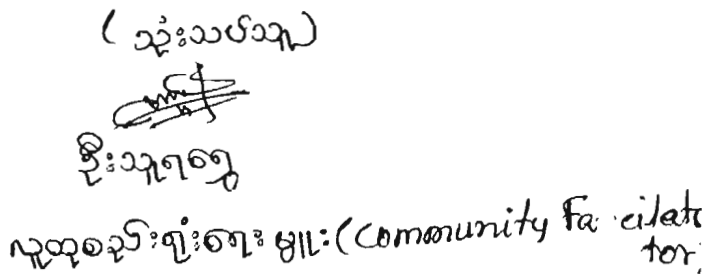 (သုံးသပ်သူ)
ဦးသူရရွှေ
လူထုစည်းရုံးရေးမှူး (Community Facilitator)